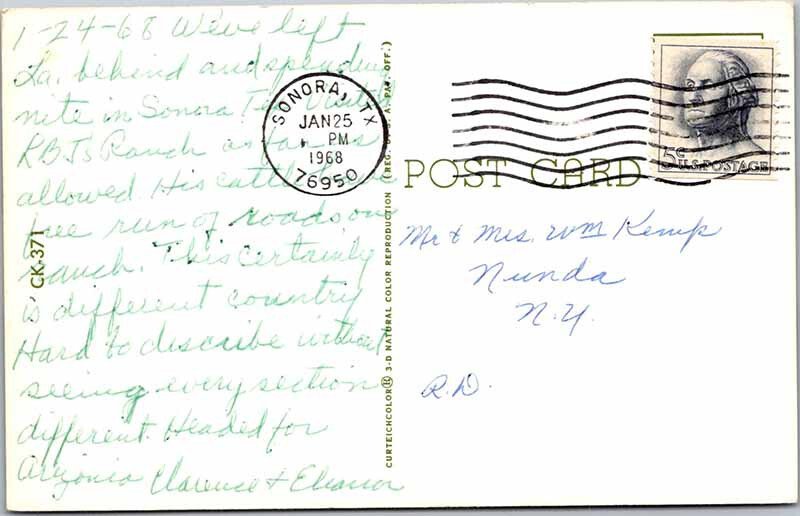 1-24-68 We've left
La. behind and spending
nite in Sonora Tex Visited
RBJs Ranch as far as
allowed. His cattle have
free run of roads on
ranch. This certainly
is different country
Hard to describe without
seeing every section
different. Headed for
Arizonia Clarence & Eleanor
CK-371
CURTEICHCOLOR® 3-D NATURAL COLOR REPRODUCTION (REG. U.S.A. PAT. OFF.)
SONORA, TX
JAN 25
PM
1968
76950
5¢
U.S. POSTAGE
POST CARD
Mr & Mrs. Wm Kemp
Nunda
N.Y.
R.D.